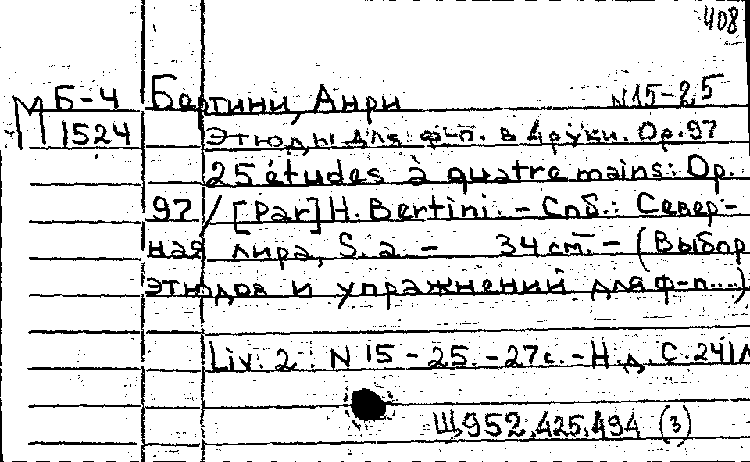 408
М Б-4 Бертини, Анри N15-25
1524 Этюды для ф-п. в 4 руки. Op.97
25 études à quatre mains: Op.
97 / [Par] H. Bertini. - Спб.: Север-
ная лира, S. a. - 34 см. - (Выбор
этюдов и упражнений для ф-п...)
Liv. 2: N 15 - 25. - 27с. - Н.д. С.241л
Щ952,425,494 (3)